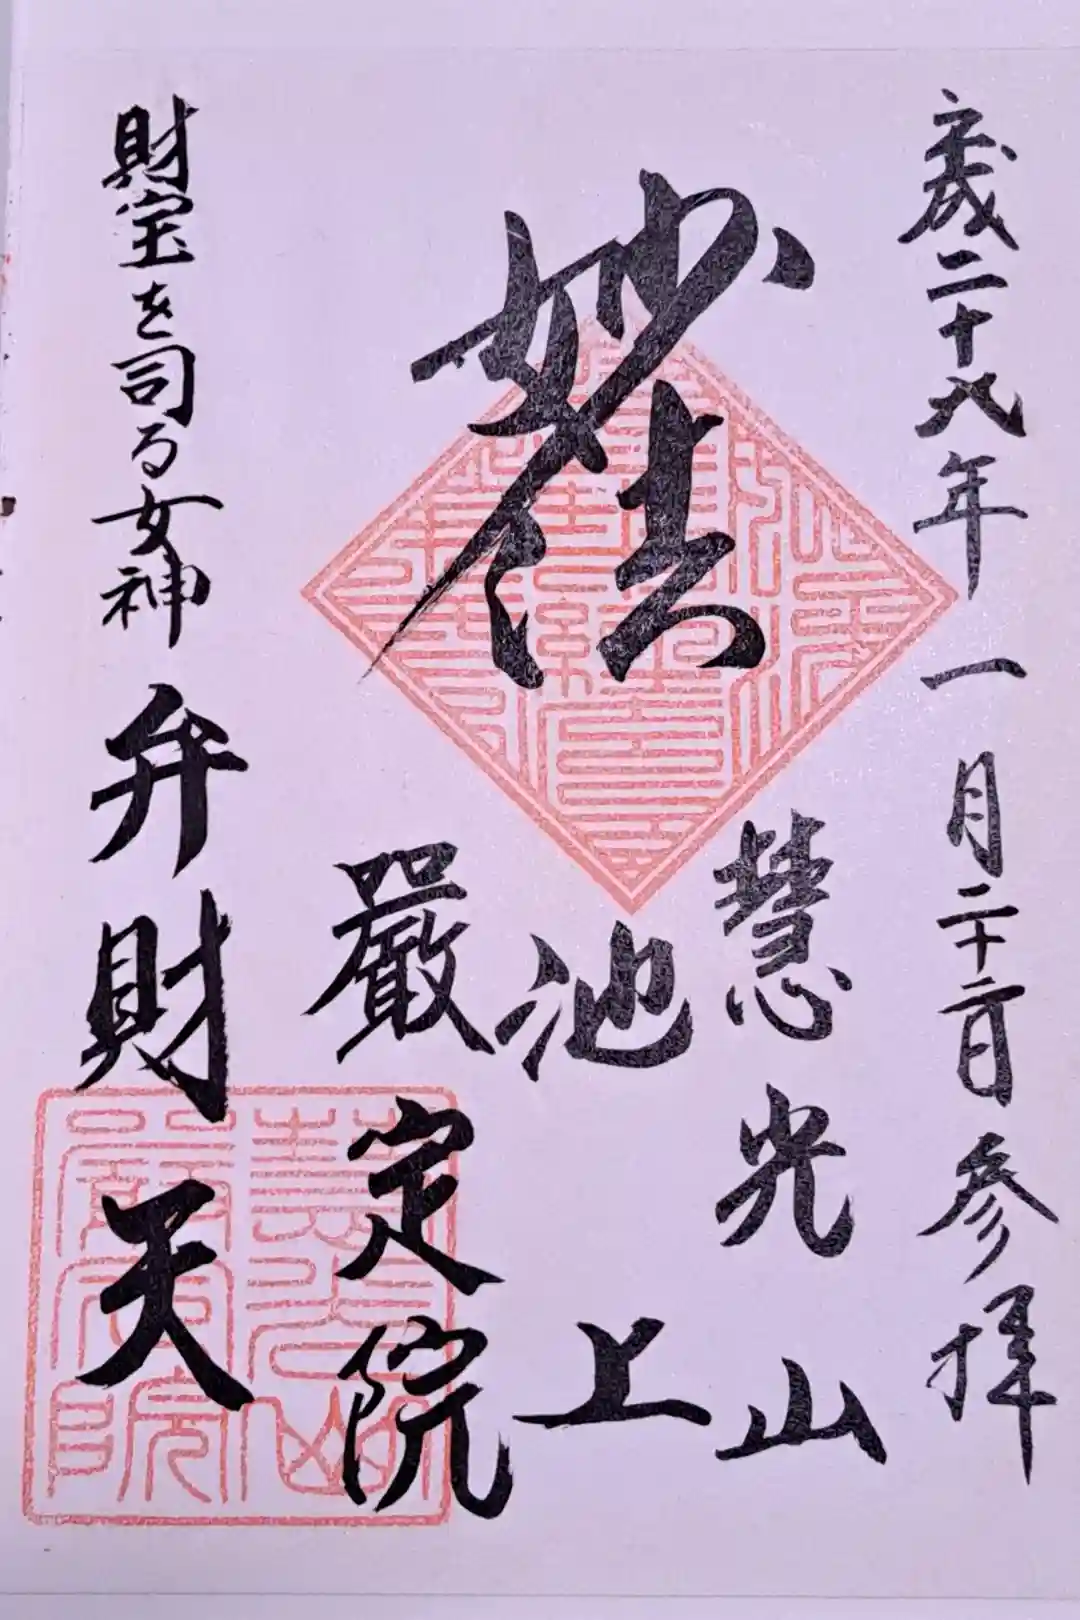 平成二十八年一月二十二日参拝
妙法
慧光山
池上
嚴定院
財宝を司る女神 弁財天
慧光山
嚴定院